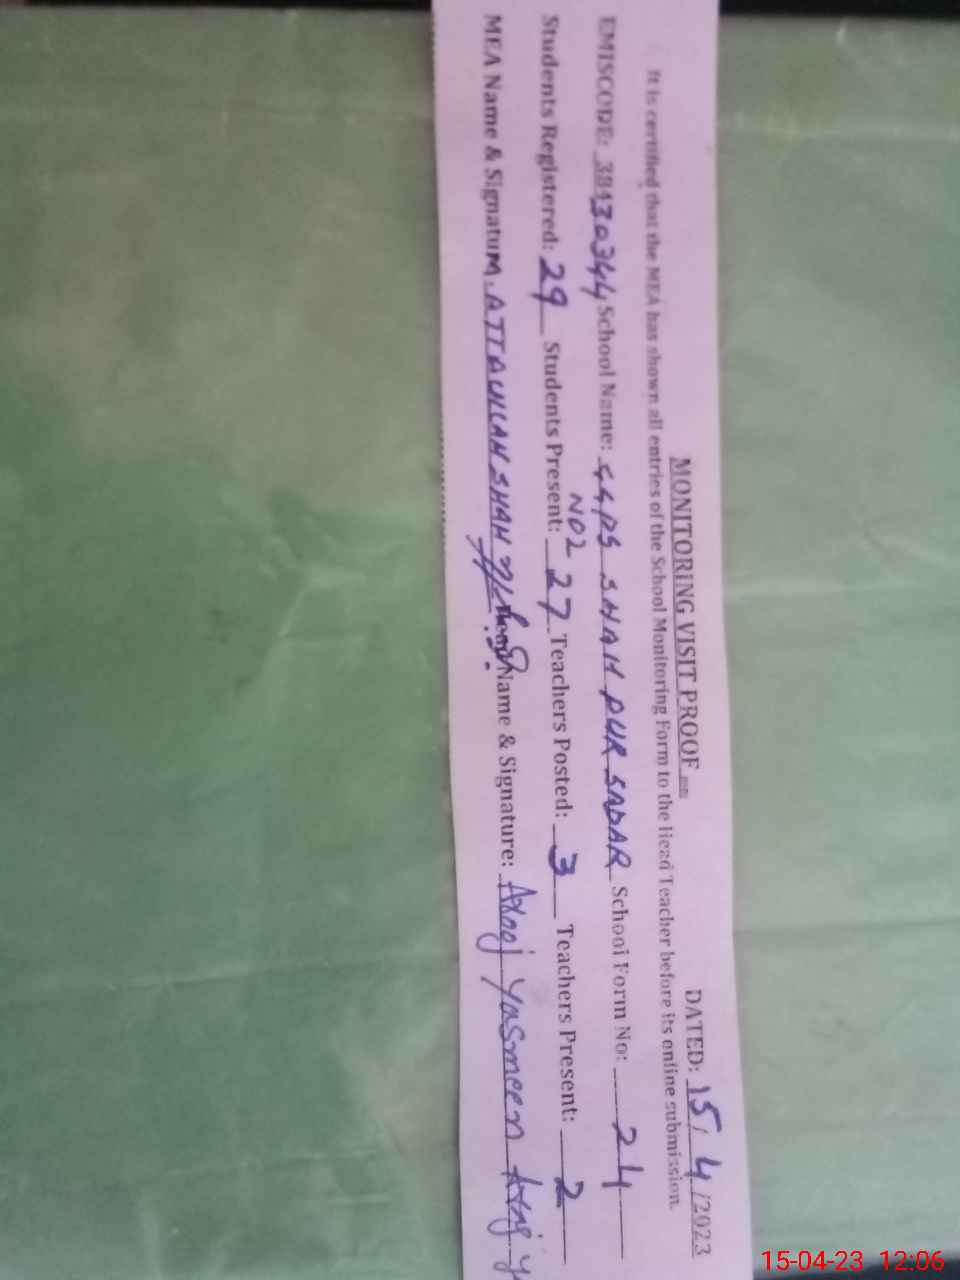 MONITORING VISIT PROOF
DATED: 15/4/2023
It is certified that the MEA has shown all entries of the School Monitoring Form to the Head Teacher before its online submission.
EMISCODE: 38130344 School Name: GGPS SHAH PUR SADAR School Form No: 24
NO2
Students Registered: 29 Students Present: 27 Teachers Posted: 3 Teachers Present: 2
MEA Name & Signatum. ATTAULLAH SHAH Name & Signature: Yasmeen
15-04-23 12:06